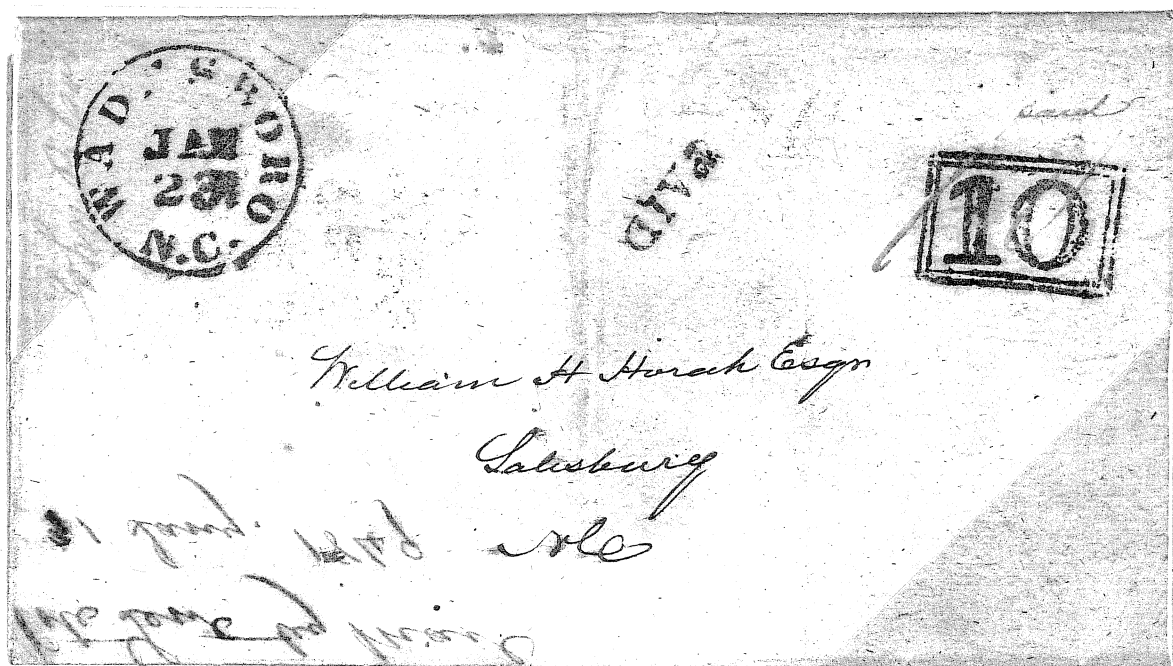 WAD. SWORO
JAN
23
N.C.
PAID
paid
10
William H Horah Esqr
Salisbury
NC